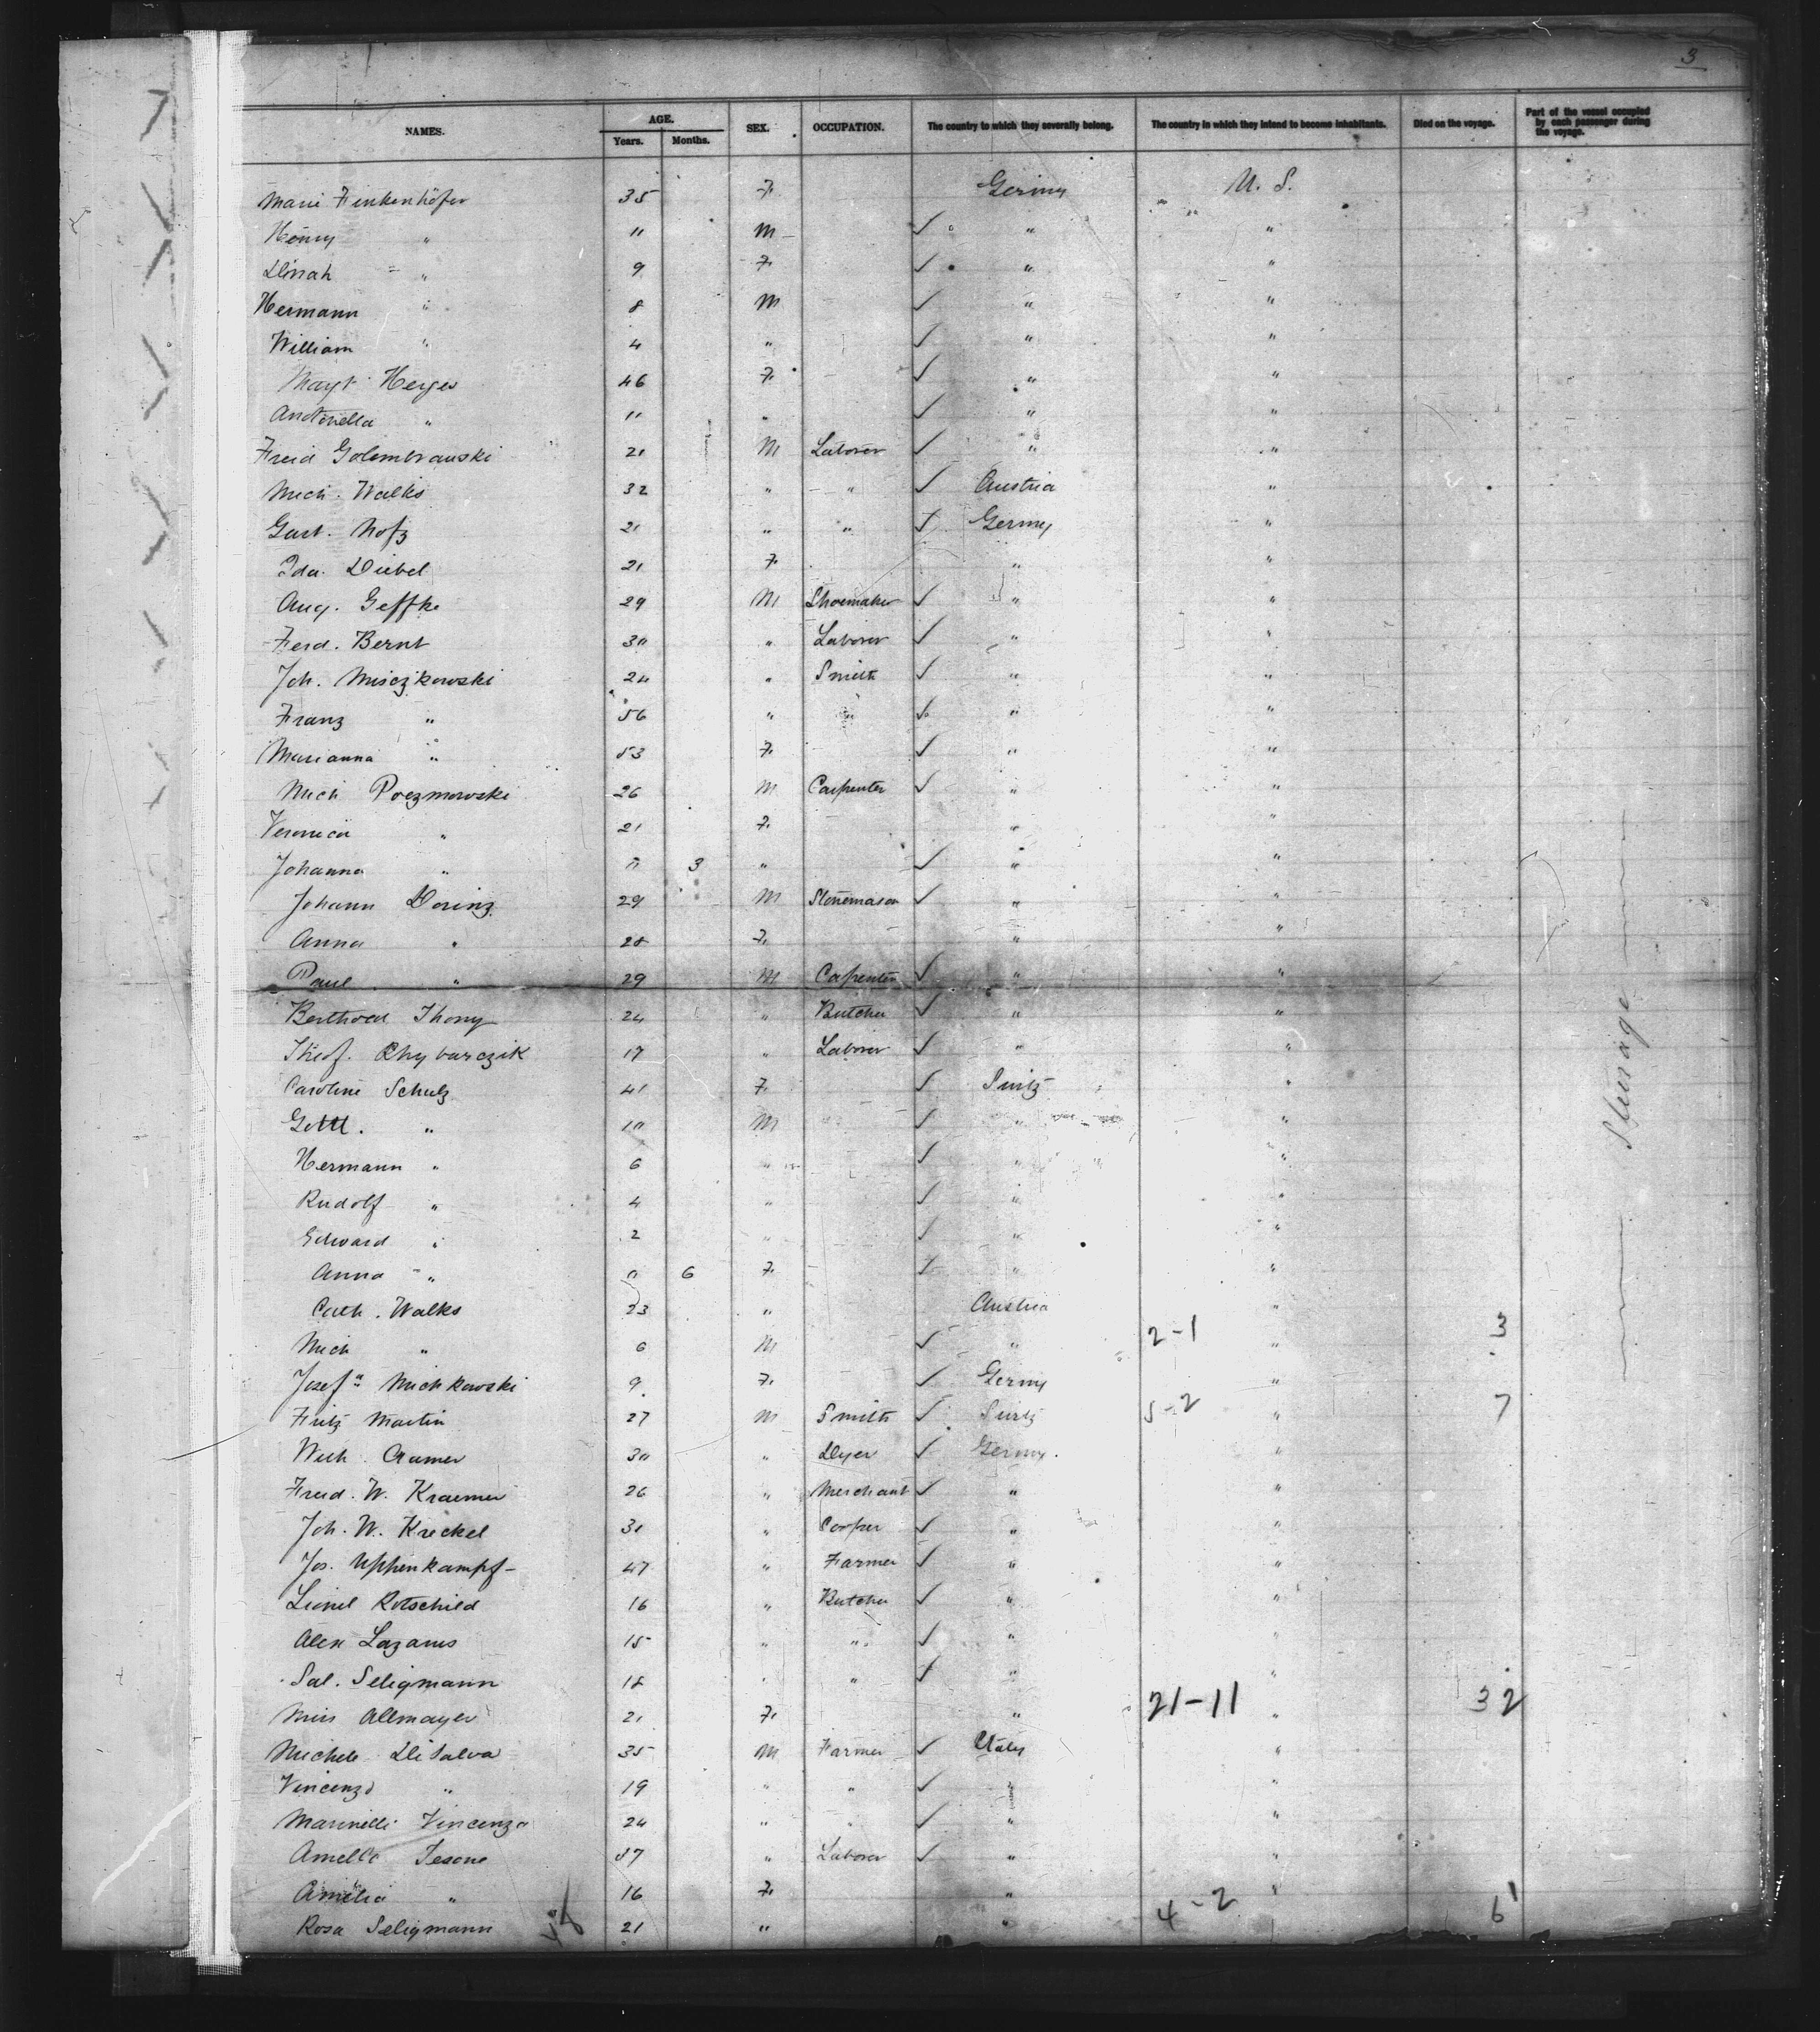 3
NAMES. AGE. Years. Months. SEX. OCCUPATION. The country to which they severally belong. The country in which they intend to become inhabitants. Died on the voyage. Part of the vessel occupied by each passenger during the voyage.
Marie Finkenhöfer 35 F. Germy U. S.
Henry " 11 M ✓ " "
Dinah " 9 F. ✓ " "
Hermann " 8 M ✓ " "
William " 4 " ✓ " "
Margt. Heyer 46 F. ✓ " "
Antonella " 11 " ✓ " "
Fried Golombrauski 21 M Laborer ✓ " "
Mich. Walks 32 " " ✓ Austria "
Gust. Notz 21 " " ✓ Germy "
Ida. Diebel 21 F. " "
Aug. Geffke 29 M Shoemaker ✓ " "
Ferd. Bernt 30 " Laborer ✓ " "
Joh. Misczkowski 24 " Smith ✓ " "
Franz " 56 " " ✓ " "
Marianna " 53 F. ✓ " "
Mich Poczmowski 26 M Carpenter ✓ " "
Veronica " 21 F. " "
Johanna " 0 3 " ✓ " "
Johann Dorinz 29 M Stonemason ✓ " "
Anna " 28 F. " "
Paul " 29 M Carpenter ✓ " "
Berthold Thony 24 " Butcher ✓ " "
Theof. Chybarczik 17 " Laborer ✓ " "
Caroline Schulz 41 F. ✓ Switz "
Gottl. " 10 M ✓ " "
Hermann " 6 " ✓ " "
Rudolf " 4 " ✓ " "
Edward " 2 " ✓ " "
Anna " 0 6 F. ✓ " "
Steerage
Cath. Walks 23 " Austria "
Mich " 6 M ✓ " 2-1 " 3
Josefa Michkowski 9 F. ✓ Germy "
Fritz Martin 27 M Smith ✓ Switz 5-2 " 7
Wilh. Cramer 30 " Dyer ✓ Germy. "
Fried. W. Kraemer 26 " Merchant ✓ " "
Joh. W. Kreckel 31 " Cooper ✓ " "
Jos. Uppenkampf 47 " Farmer ✓ " "
Lionel Rotschild 16 " Butcher ✓ " "
Alex Lazarus 15 " " ✓ " "
Sal. Seligmann 18 " " ✓ " "
Miss Allmayer 21 F. " 21-11 " 32
Michele DiSalva 35 M Farmer ✓ Italy "
Vincenzo " 19 " " ✓ " "
Marinelli Vincenzo 24 " " ✓ " "
Amello Tesone 57 " Laborer ✓ " "
Amelia " 16 F. " "
4-2 6
Rosa Seligmann 48 21 " "